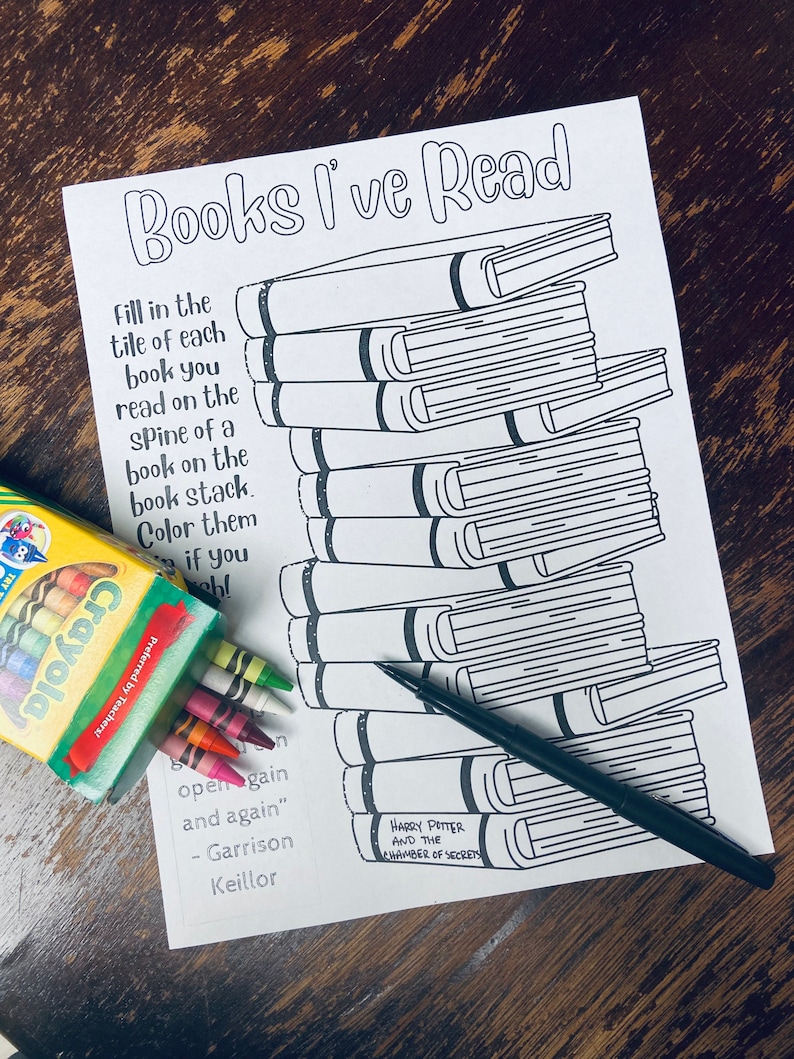 Books I've Read
Fill in the
tile of each
book you
read on the
spine of a
book on the
book stack.
Color them
if you
open again
and again"
- Garrison
Keillor
HARRY POTTER
AND THE
CHAMBER OF SECRETS
Crayola
Preferred by Teachers!
TRY